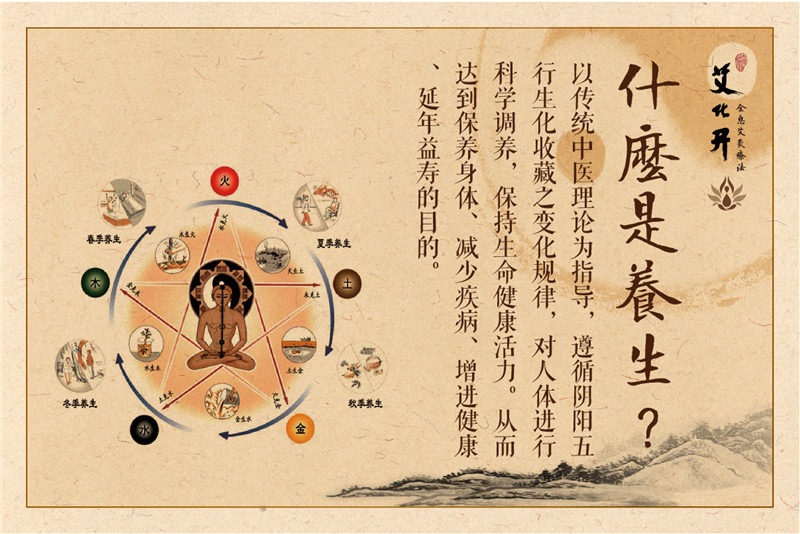 什麼是養生？
以传统中医理论为指导，遵循阴阳五
行生化收藏之变化规律，对人体进行
科学调养，保持生命健康活力。从而
达到保养身体、减少疾病、增进健康
、延年益寿的目的。
艾化开
全息艾灸療法
火
春季养生
夏季养生
木生火
火生土
木
土
金克木
木克土
水生木
土生金
冬季养生
秋季养生
土克水
火克金
金生水
水
金